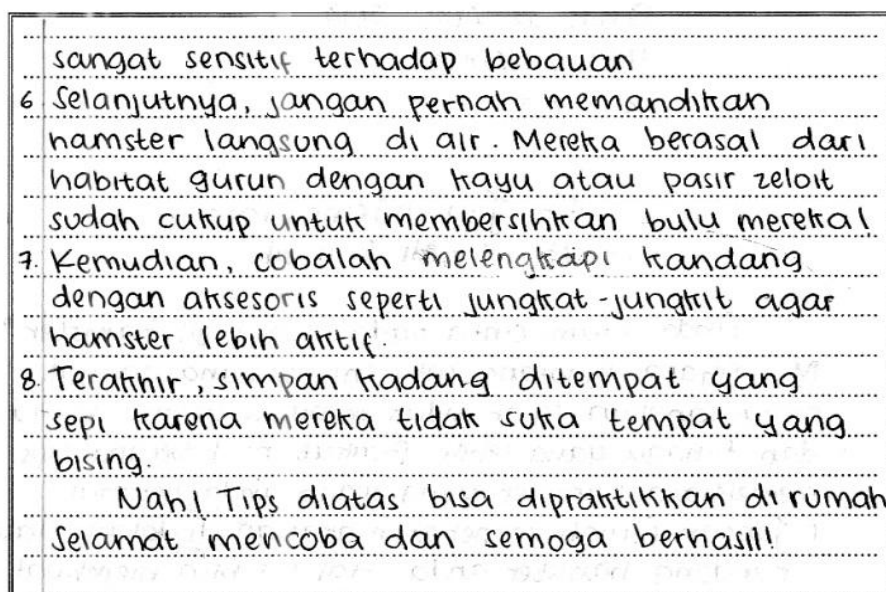 sangat sensitif terhadap bebauan
6 Selanjutnya, jangan pernah memandikan
hamster langsung di air. Mereka berasal dari
habitat gurun dengan kayu atau pasir zeloit
sudah cukup untuk membersihkan bulu mereka!
7. Kemudian, cobalah melengkapi kandang
dengan aksesoris seperti jungkat-jungkit agar
hamster lebih aktif.
8. Terakhir, simpan kadang ditempat yang
sepi karena mereka tidak suka tempat yang
bising.
Nah! Tips diatas bisa dipraktikkan di rumah
Selamat mencoba dan semoga berhasil!